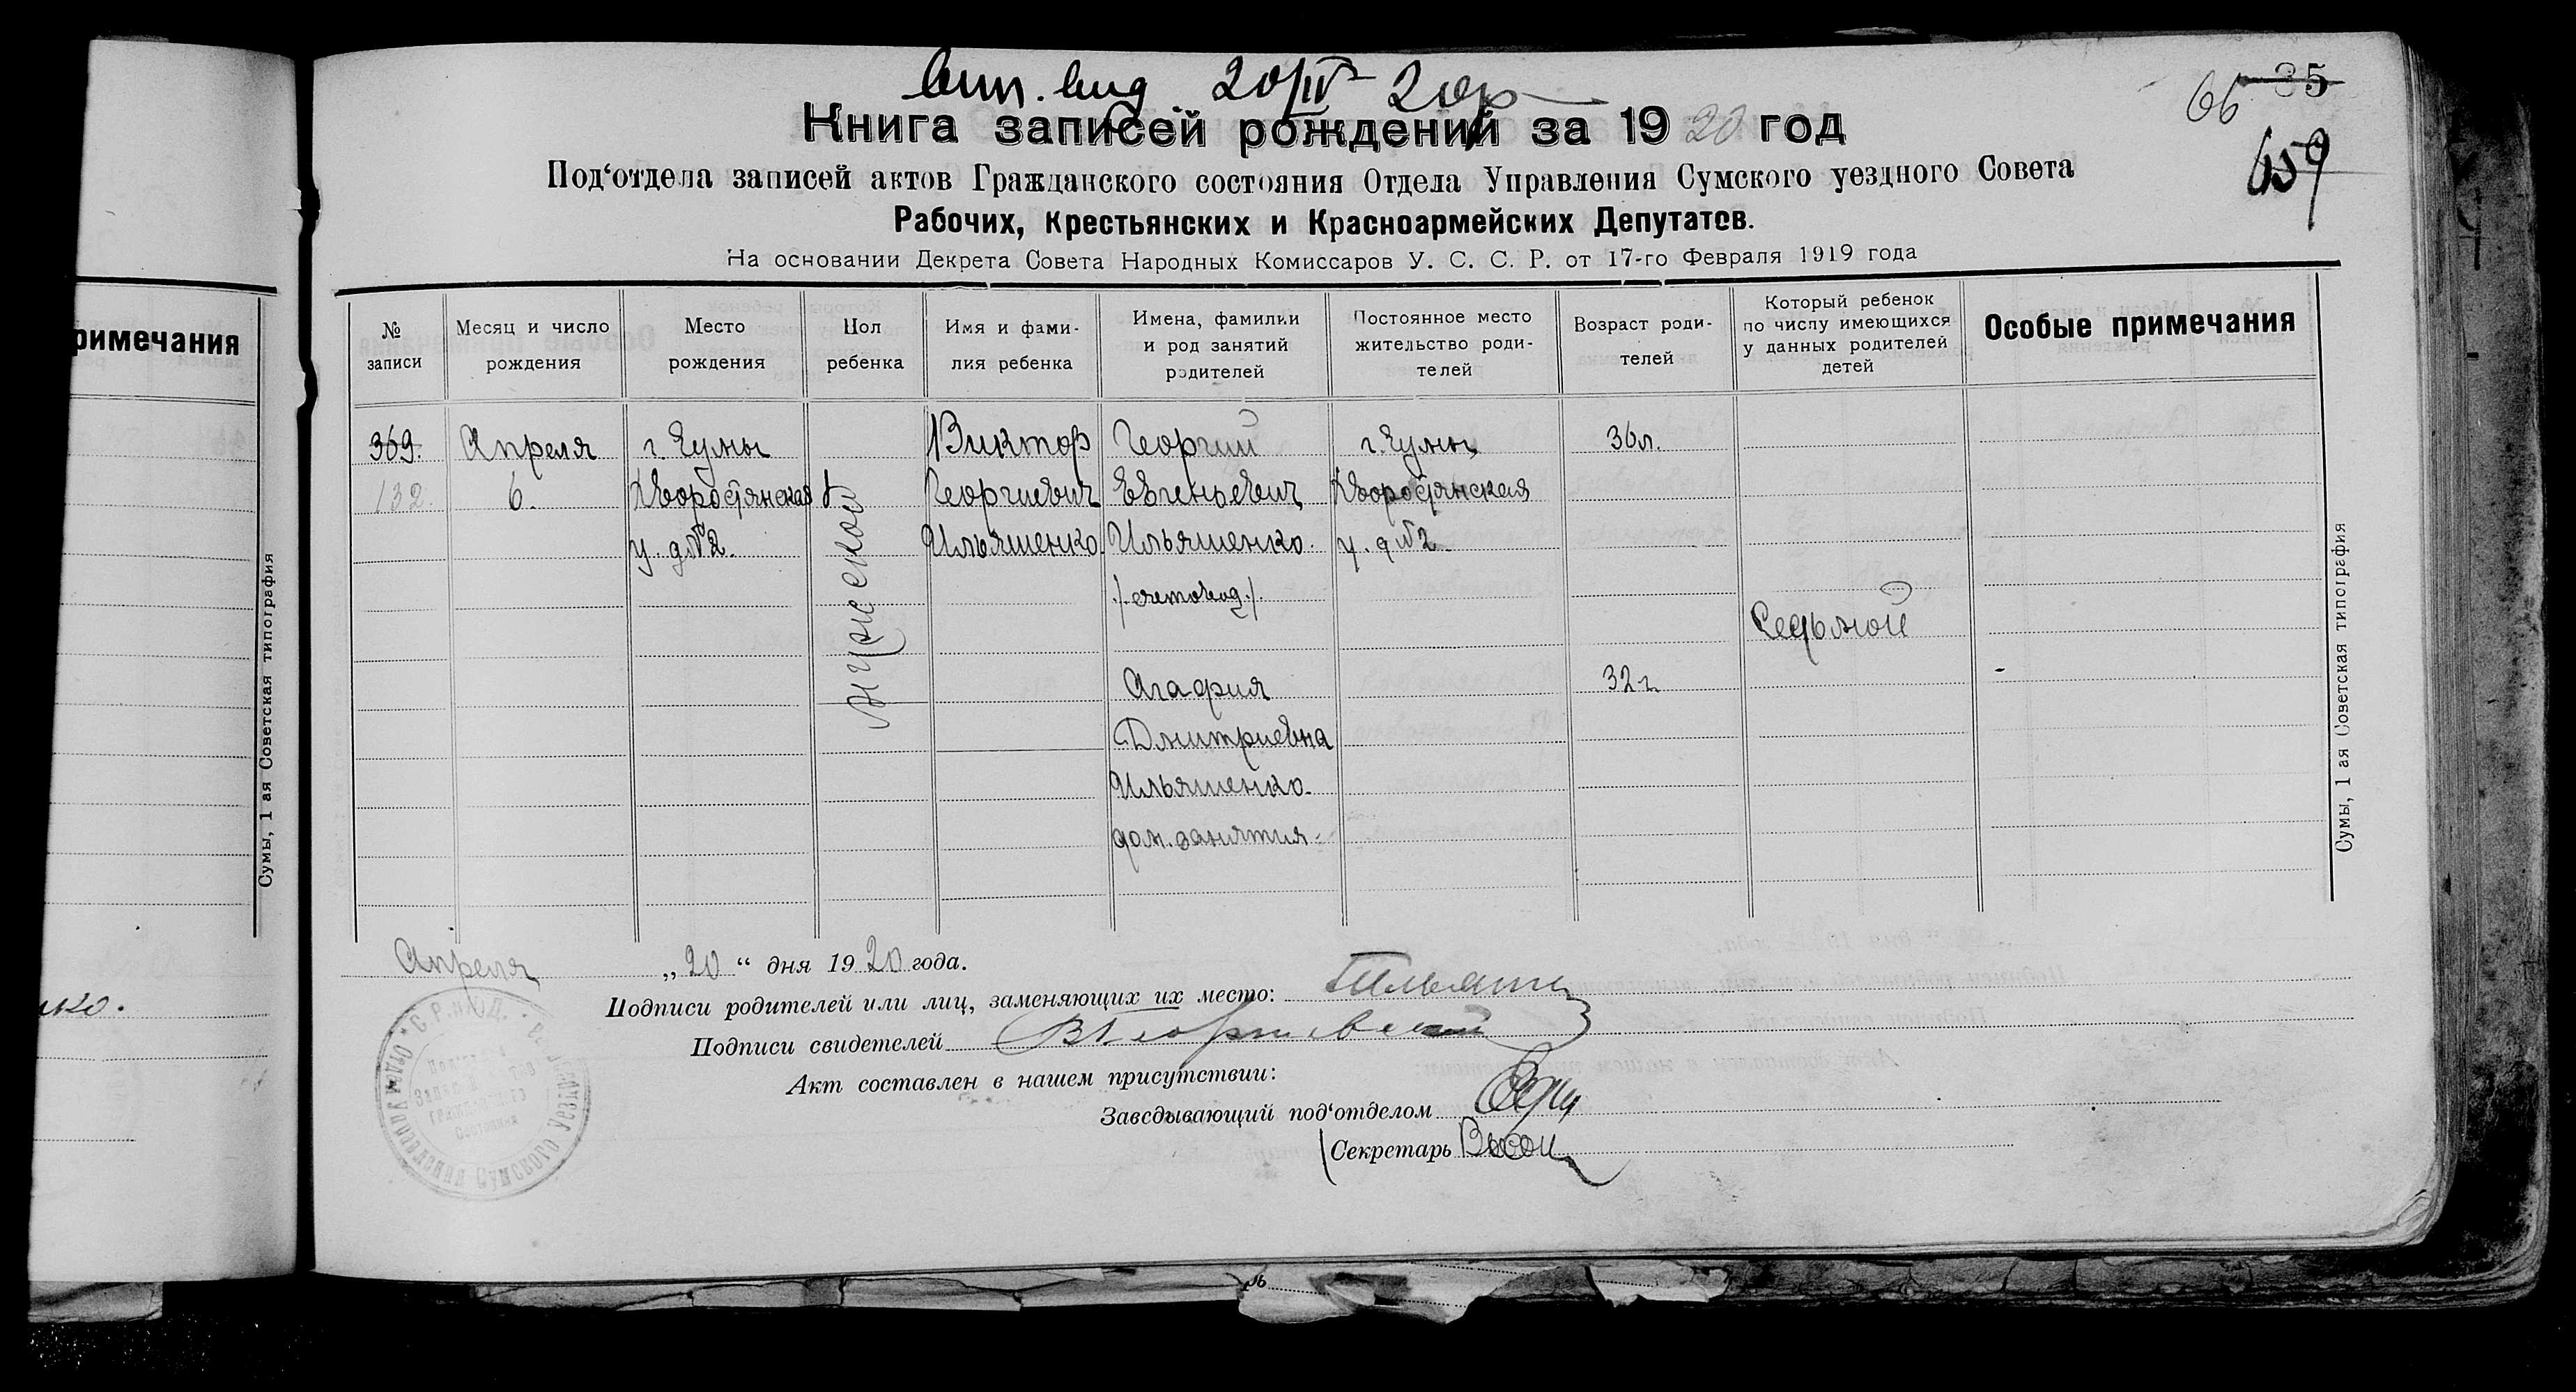 вып. вид 20/IV 20 г.
66 35
659
Книга записей рождений за 1920 год
Под‘отдела записей актов Гражданского состояния Отдела Управления Сумского уездного Совета
Рабочих, Крестьянских и Красноармейских Депутатов.
На основании Декрета Совета Народных Комиссаров У. С. С. Р. от 17-го Февраля 1919 года
римечания
№ записи
Месяц и число рождения
Место рождения
Пол ребенка
Имя и фамилия ребенка
Имена, фамилии и род занятий родителей
Постоянное место жительство родителей
Возраст родителей
Который ребенок по числу имеющихся у данных родителей детей
Особые примечания
369. Апреля г. Сумы Виктор Георгий г. Сумы 36 л.
132. 6. Георгиевич Евгеньевич
у. д № 2. Ильяшенко. Ильяшенко. у. д № 2.
мужеской
/счетовод./
Седьмой
Агафия 32 г.
Дмитриевна
Ильяшенко.
дом. занятия.
Сумы, 1 ая Советская типография
Сумы, 1 ая Советская типография
Апреля „20“ дня 1920 года.
Подписи родителей или лиц, заменяющих их место:
Подписи свидетелей
Акт составлен в нашем присутствии:
Заведывающий под‘отделом
Секретарь
нко.